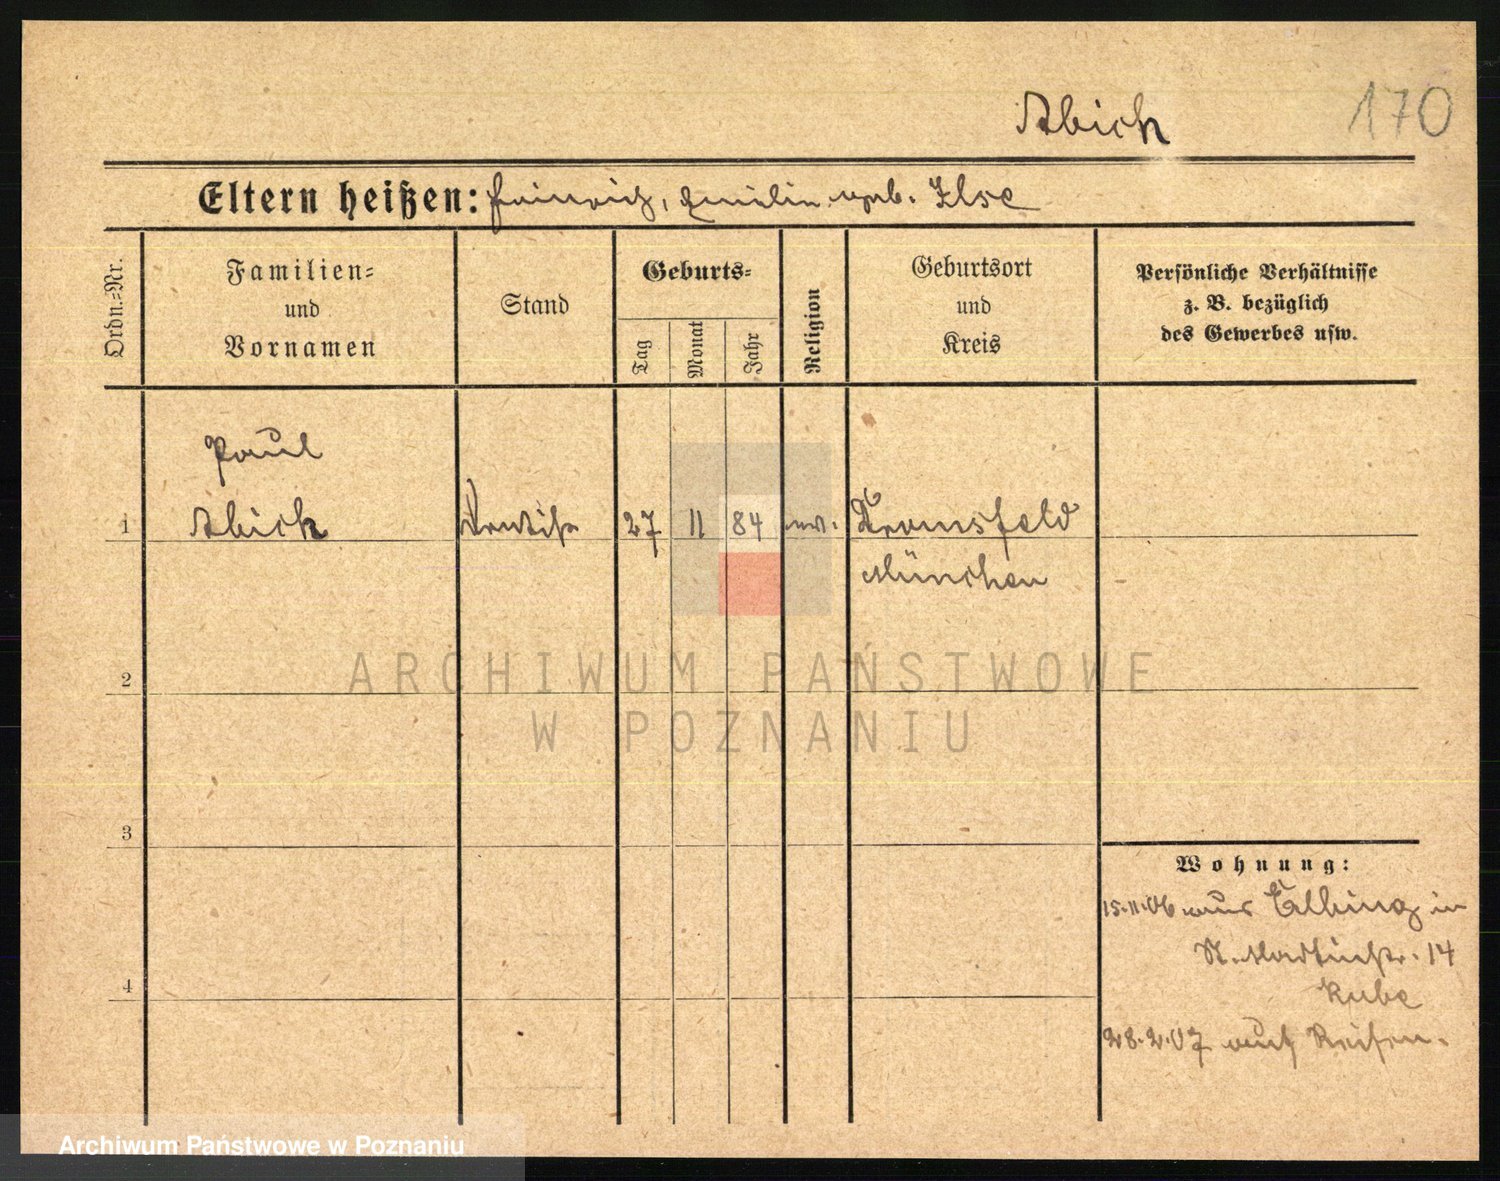 Abich
170
Eltern heißen: Heinrich, Emilie geb. Ilse
Ordn.-Nr.
Familien-
und
Vornamen
Stand
Geburts-
Tag
Monat
Jahr
Religion
Geburtsort
und
Kreis
Persönliche Verhältnisse
z. B. bezüglich
des Gewerbes usw.
Paul
1 Abich Artist 27 11 84 ev. Kromsfeld
München
2
ARCHIWUM PAŃSTWOWE
W POZNANIU
3
Wohnung:
15.11.06 aus Elbing in
St. Martinstr. 14
Kube
4
28.2.07 auf Reisen.
Archiwum Państwowe w Poznaniu